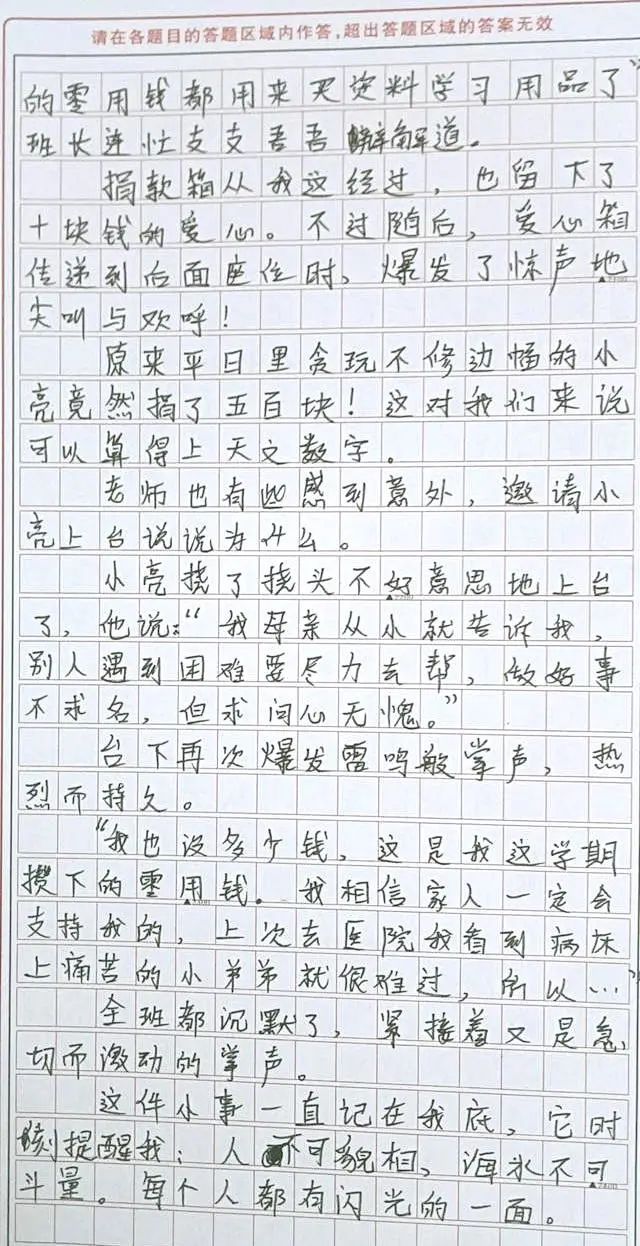 请在各题目的答题区域内作答,超出答题区域的答案无效
的零用钱都用来买资料学习用品了”
班长连忙支支吾吾解道。
捐款箱从我这经过，也留下了
十块钱的爱心。不过随后，爱心箱
传递到后面座位时，爆发了惊声地
尖叫与欢呼！
原来平日里贪玩不修边幅的小
亮竟然捐了五百块！这对我们来说
可以算得上天文数字。
老师也有些感到意外，邀请小
亮上台说说为什么。
小亮挠了挠头不好意思地上台
了，他说：“我母亲从小就告诉我，
别人遇到困难要尽力去帮，做好事
不求名，但求问心无愧。”
台下再次爆发雷鸣般掌声，热
烈而持久。
“我也没多少钱，这是我这学期
攒下的零用钱。我相信家人一定会
支持我的，上次去医院我看到病床
上痛苦的小弟弟就很难过，所以…”
全班都沉默了，紧接着又是急
切而激动的掌声。
这件小事一直记在我底，它时
刻提醒我：人不可貌相，海水不可
斗量。每个人都有闪光的一面。